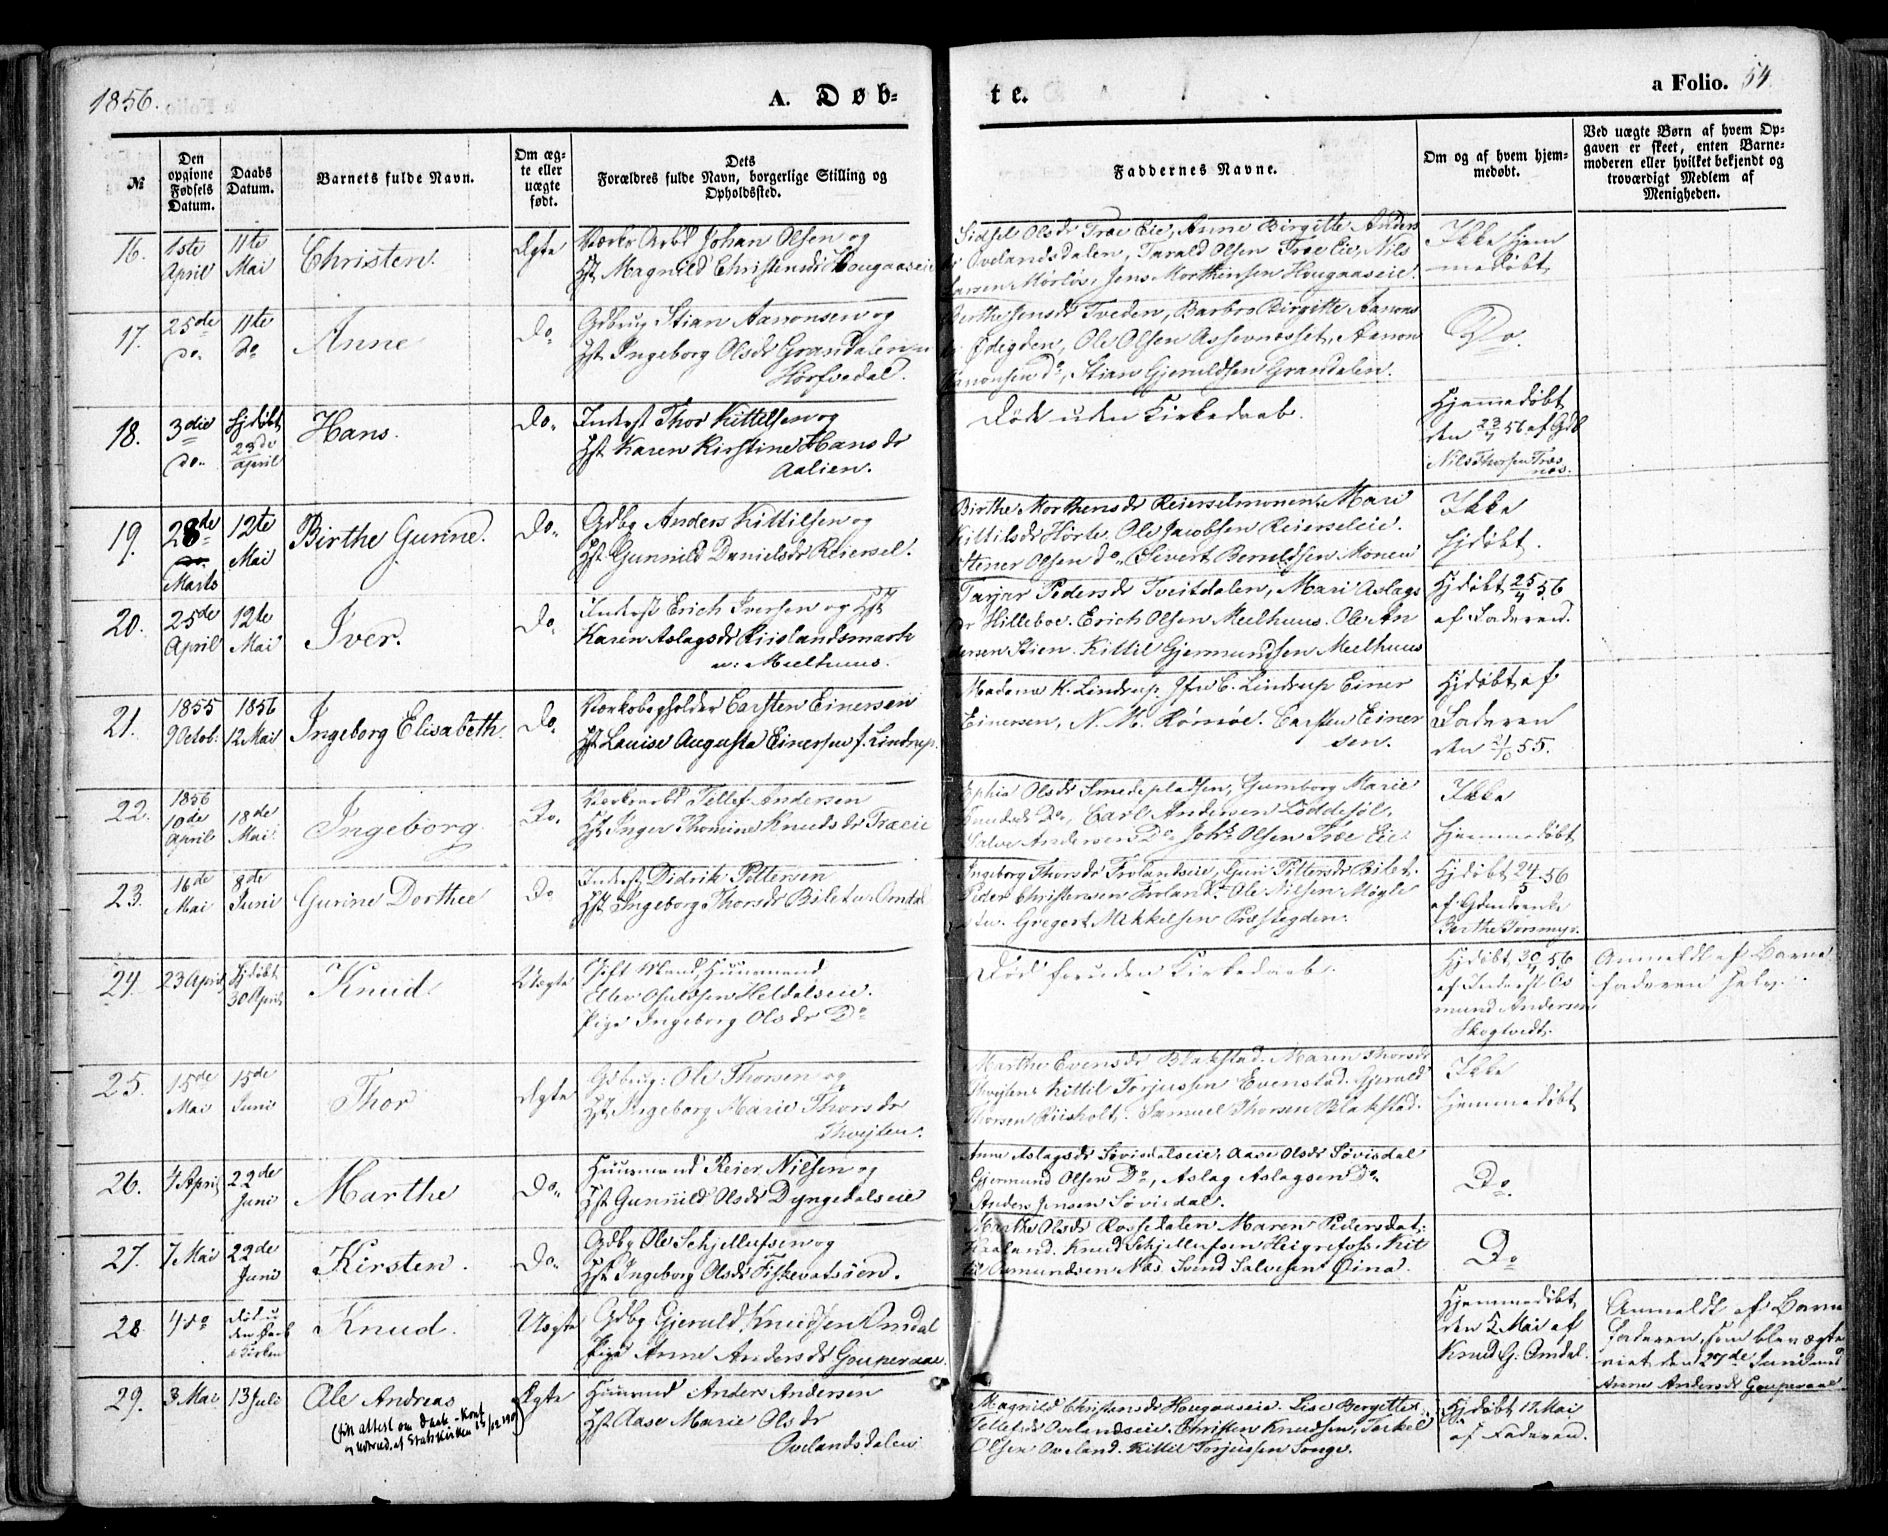 1856.
A. Døb-
te.
a Folio. 54.
№
Den opgivne Fødsels Datum.
Daabs Datum.
Barnets fulde Navn.
Om ægte eller uægte født.
Dets Forældres fulde Navn, borgerlige Stilling og Opholdssted.
Faddernes Navne.
Om og af hvem hjemmedøbt.
Ved uægte Børn af hvem Opgaven er skeet, enten Barnemoderen eller hvilket bekjendt og troværdigt Medlem af Menigheden.
16.
1ste April
11te Mai
Christen.
Ægte
Værks Arbd Johan Olsen og
Hst Magnild Christensdr Hougaaseie
Sidsel Olsdr Træ Eie, Anne Birgitte Anders
dr Ovelandsdalen, Tarald Olsen Træ Eie, Nils
Larsen Mørløs, Jens Morthensen Hougaaseie.
Ikke hjem
medøbt.
17.
25de do.
11te do
Anne
Do
Gdbrug Stian Aanonsen og
Hst Ingeborg Olsdr Grandalen u
Horfvedal.
Berthe Jensdr Tveden, Barbro Birgitte Aanons
dr Ødegden, Ole Olsen Assevnæsset, Aanon
Aanonsen do, Stian Gjeruldsen Grandalen.
Do.
18.
3die do.
Hjdøbt 23de April
Hans.
Do.
Inderst Thor Kittilsen og
Hst Karen Kirstine Hansdr
Aalien.
Død uden Kirkedaab.
Hjemmedøbt
den 23/4 56 af Gdb
Nils Thorsen Træ
næs.
19.
28de Marts
12te Mai
Birthe Gurine.
Do.
Gdbg Anders Kittilsen og
Hst Gunnild Danielsdr Reiersel.
Birthe Morthensdr Reierselmonen, Mari
Kittilsdr Hørte, Ole Jacobsen Reierseleie.
Stener Olsen do. Sivert Beruldsen Monen
Ikke
hjdøbt.
20.
25de April
12te Mai
Iver.
Do.
Inderst Erich Iversen og Hst
Karen Aslagsdr Riislandsmark
u: Mielhuus.
Tarjar Pedersdr Tveitdalen, Mari Aslags
dr Hilleboe. Erich Olsen Meelhuus. Ole An
dersen Stien. Kittil Gjermundsen Meelhuus
Hjdøbt 25/4 56
af Faderen.
21.
1855 9 Octob.
1856 12 Mai
Ingeborg Elisabeth.
Do.
Værksbogholder Carsten Einersen
Hst Lauise Augusta Einersen f. Lindrup.
Madame K. Lindrup. Jfru C. Lindrup Einer
Einersen, N. M. Rømøe. Carsten Einer
sen.
Hjdøbt af
Faderen
den 21/10 55.
22.
1856 10de April
18de Mai
Ingeborg
Do.
Værksarbd Tellef Andersen
Hst Inger Thomine Knudsdr Træeie
Sophia Olsdr Smedepladsen, Gumborg Marie
Knudsdr Do, Carl Andersen Løddesøl,
Salve Andersen Do Johs Olsen Træ Eie.
Ikke
hjemmedøbt
23.
16de Mai
8de Juni
Gurine Dorthee
Do
Inderst Didrik Pettersen
Hst Ingeborg Thorsdr Bilet u: Omdal
Ingeborg Thorsdr Frolandseie, Guri Pittersdr Bilet.
Peder Christensen Froland. Ole Nilsen Mogle
stu. Gregert Mikkelsen Præstegden.
Hjdøbt 24/5 56
af Gdmdenke
Berthe Torsmyr.
24.
23 April
Hjdøbt 30 April
Knud
Uægte
Gift Mand, Huusmand,
Ellev Osuldsen Heldalseie.
Pige Ingeborg Olsdr Do
Død foruden Kirkedaab.
Hjdøbt 30/4 56
af Inderst Os
mund Andersen
Skogtvedt.
Anmeldt af Barne
faderen selv.
25.
15de Mai
15de Juni
Thor
Ægte
Gdbrug: Ole Thorsen og
Hst Ingeborg Marie Thorsdr
Thveiten.
Marthe Evensdr Blakstad. Maren Thorsdr
Thveiten. Kittil Torjussen Evenstad. Gjeruld
Thorsen Riisholt. Samuel Thorsen Blakstad.
Ikke
hjemmedøbt
26.
4 April
22de Juni
Marthe
Do.
Huusmand Reier Nilsen og
Hst Gunnild Olsdr Dyngedalseie
Anne Aslagsdr Søvisdalseie, Aase Olsdr Søvisdal
Gjermund Olsen Do, Aslag Aslagsen Do
Anders Jensen Søvisdal.
Do.
27.
7 Mai
22de Juni
Kirsten.
Do.
Gdbg Ole Schjellufsen og
Hst Ingeborg Olsdr Fiskevatsøen.
Marthe Olsdr Rossedalen Maren Pedersdat:
Haaland. Knud Schjellufsen Heigrefoss. Kit
til Osmundsen Næs Svend Salvesen Øina.
Do
28.
4 do
død u
den Daab
i Kirken
Knud.
Uægte
Gdbg Gjeruld Knudsen Omdal
Pige Anne Andersdr Goupevaae
Hjemmedøbt
den 5 Mai af
Knud G: Omdal.
Anmeldt af Barne
faderen, som blev ægte
viet den 27de Juni med
Anne Andersdr Goupevaae
29.
3 Mai
13 Juli
Ole Andreas
(fått attest om daab - Konf.
og udtræd. af Statskirken 15/12 190)
Ægte
Huusmd Anders Andersen
Hst Aase Marie Olsdr
Ovelandsdalen
Magnild Christensdr Hougaaseie. Lise Bergitte
Tellefsdr Ovelandseie. Christen Knudsen, Terkel
Olsen Oveland. Kittil Torjussen Songe.
Hjdøbt 12 Mai
af Faderen.